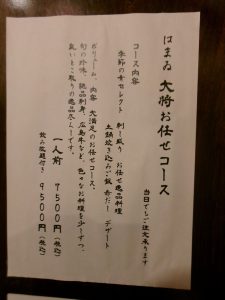 はまゐ 大将お任せコース
当日でもご注文承ります
コース内容
季節の幸セレクト 刺し盛り お任せ逸品料理
土鍋炊き込みご飯 赤だし デザート
ボリューム、内容 大満足のお任せコース。
旬の珍味、逸品刺身、広島牛など、色々なお料理を少しずつ、
良いとこ取りの逸品尽くしです。
一人前 7500円(税込)
飲み放題付き 9500円(税込)